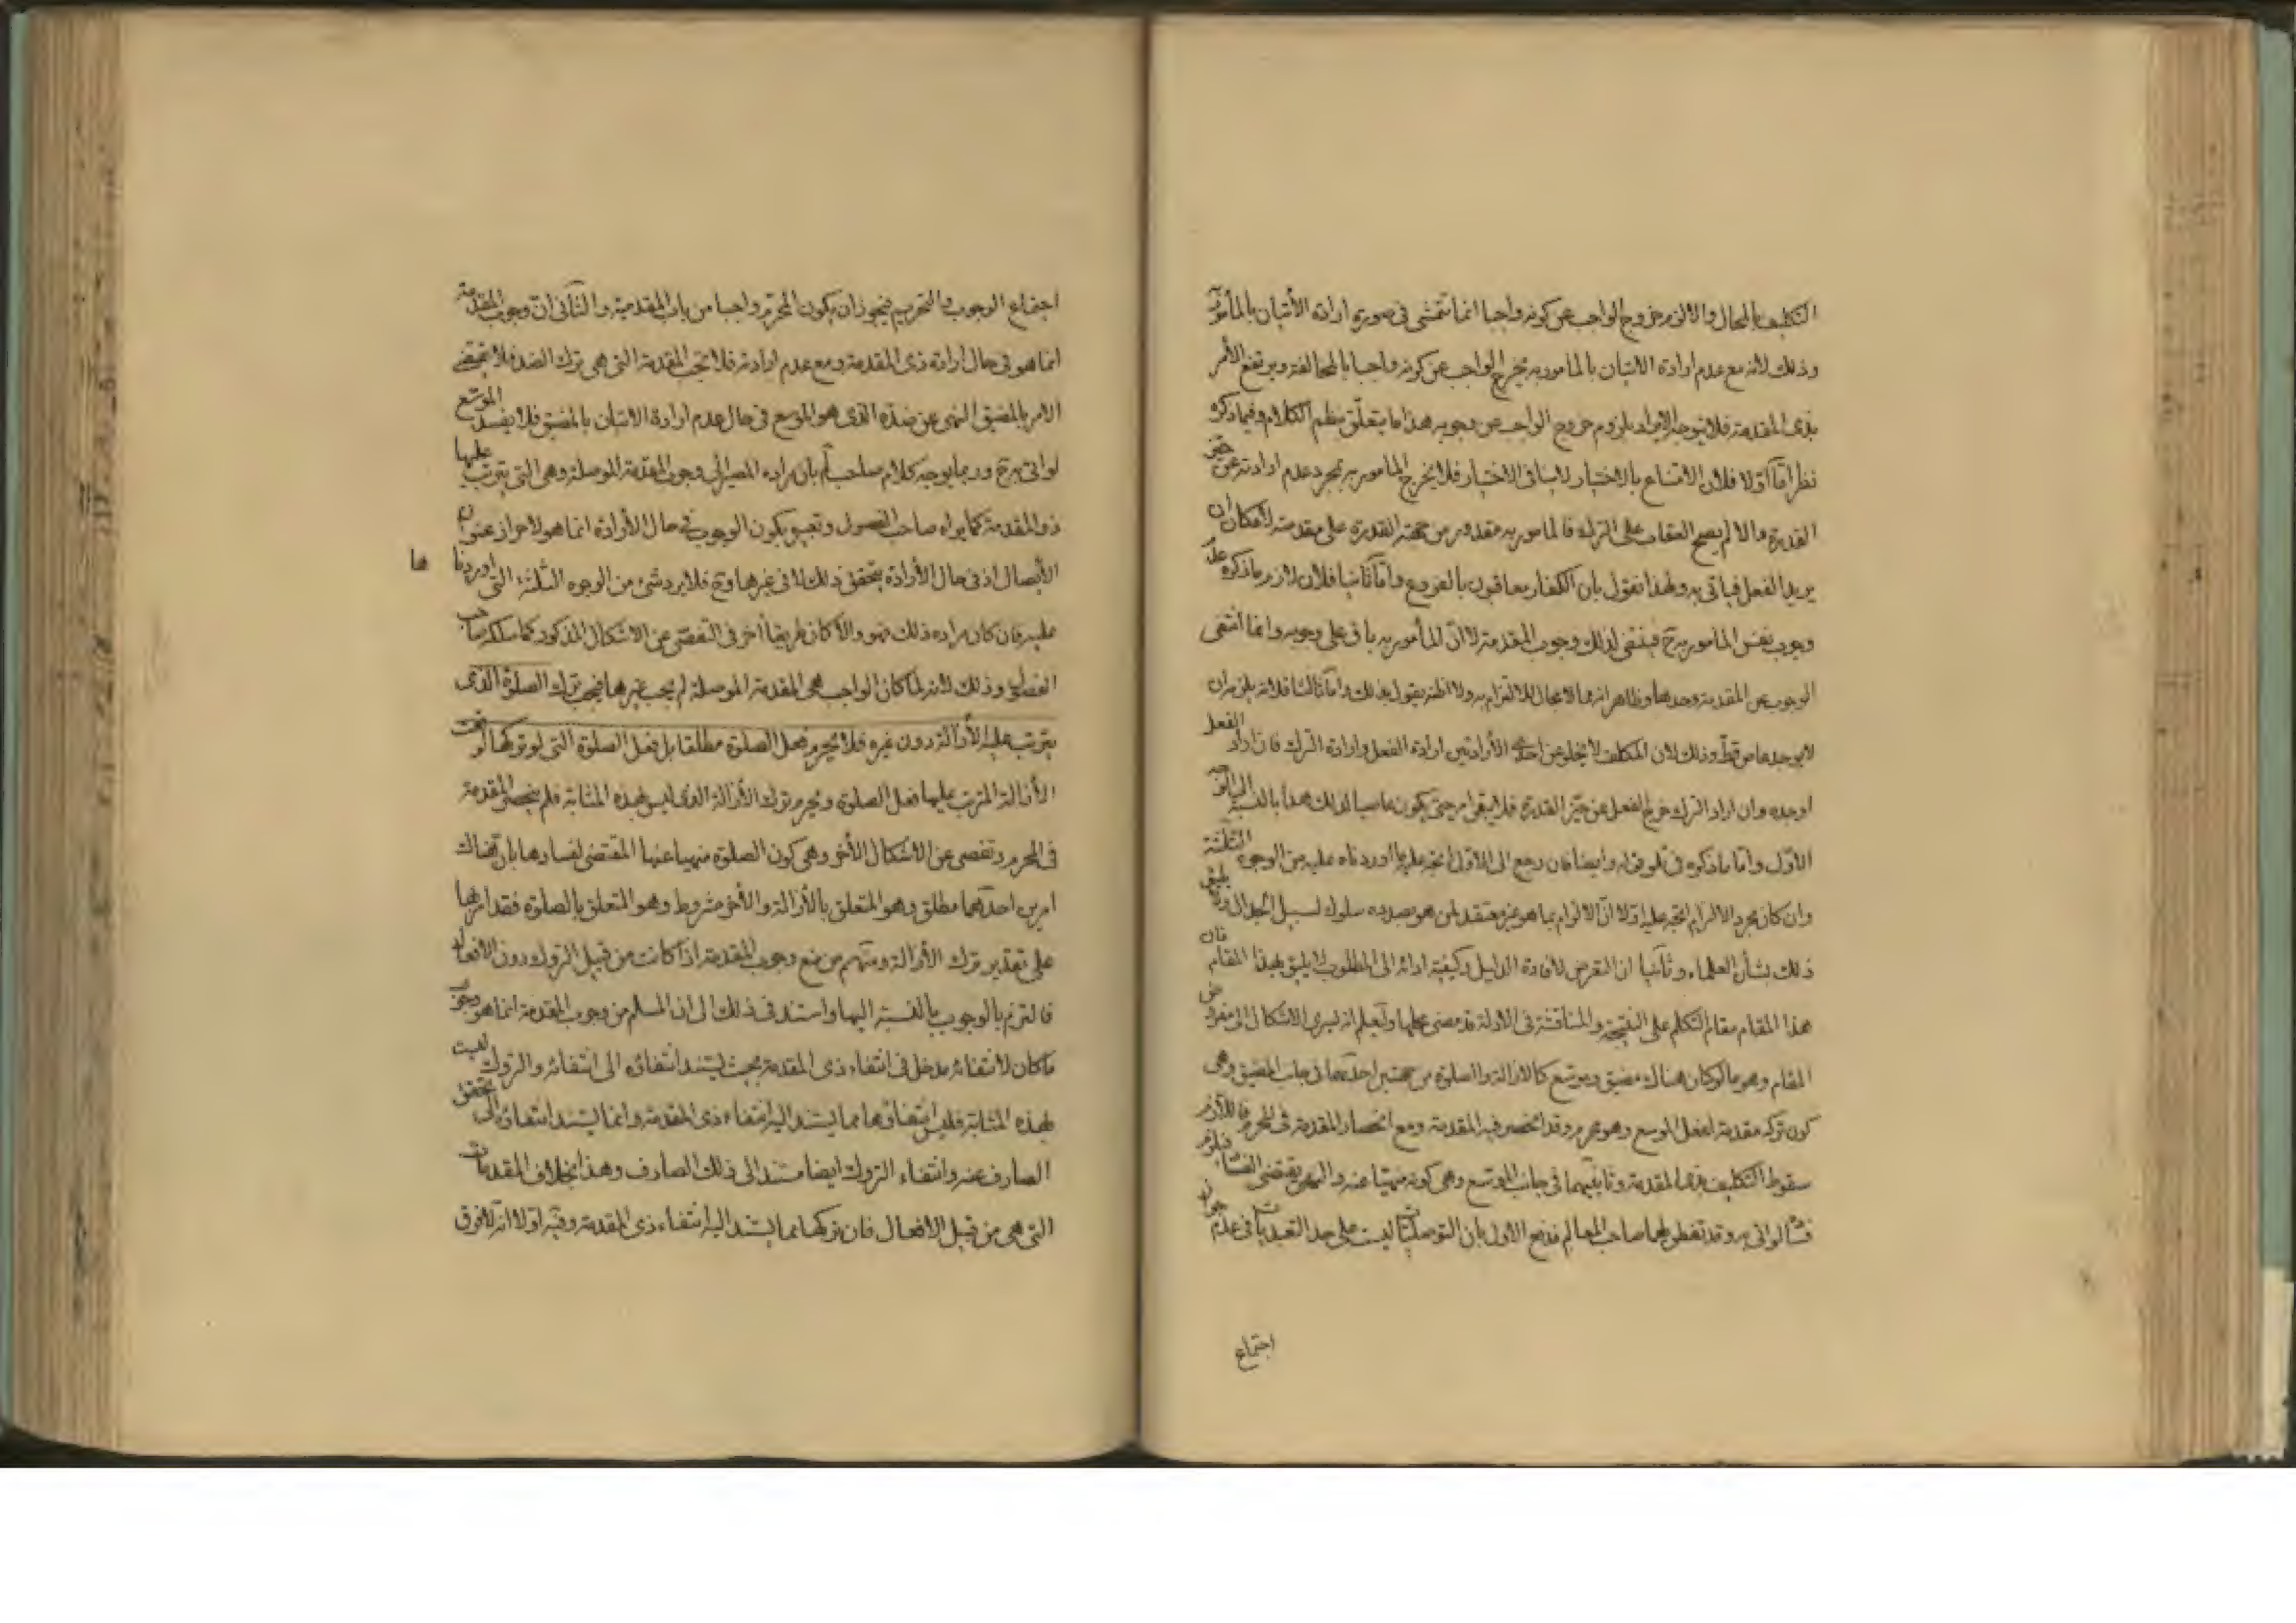 التكليف بالمحال والا لزم خروج الواجب عن كونه واجبا انما تتمشى في صورة ارادة الأتيان بالمأمور به
وذلك لانه مع عدم ارادة الاتيان بالمامور به يخرج الواجب عن كونه واجبا بالمخالفة ويرتفع الأمر
بذى المقدمة فلا يتوجه الايراد بلزوم خروج الواجب عن وجوبه هذا ما يتعلق بنظم الكلام وفيما ذكره
نظر امّا اوّلا فلان الامتناع بالاختيار لا ينافى الاختيار فلا يخرج المامور به بمجرد عدم ارادته عن حيّز
القدرة والا لم يصح العقاب على الترك فالمامور به مقدور من جهة القدرة على مقدمته لامكان ان
يريد الفعل فياتى به ولهذا نقول بان الكفار معاقبون بالفروع وامّا ثانيا فلان لازم ما ذكره عدم
وجوب نفس المامور به ح فينتفى لذلك وجوب المقدمة لا انّ المأمور به باق على وجوبه وانما انتفى
الوجوب عن المقدمة وحدها وظاهر انه مما لا مجال للالتزام به ولا اظنه يقول بذلك وامّا ثالثا فلانه يلزم ان
لا يوجد عاص قطّ وذلك لان المكلف لا يخلو عن احدى الأرادتين ارادة الفعل وارادة الترك فان اراد الفعل
اوجده وان اراد الترك خرج الفعل عن حيّز القدرة فلا يبقى امر حتى يكون عاصيا لذلك هذا بالنسبة الى التوجيه
الاوّل وامّا ما ذكره في تلو قوله وايضا فان رجع الى الاوّل اتجه عليه ما اوردناه عليه من الوجوه الثلثة
وان كان مجرد الالزام اتجه عليه اوّلا انّ الالزام بما هو غير معتقد لمن هو بصدده سلوك لسبيل الجدال وما يليق
ذلك بشأن العلماء وثانيا ان التعرض لأفادة الدليل وكيفية ادائه الى المطلوب لا يليق بهذا المقام فان
هذا المقام مقام التكلم على النتيجة والمناقشة في الادلة قد مضى محلها وليعلم انه يسرى الاشكال الى مفروض
المقام وهو ما لو كان هناك مضيق وموسّع كالازالة والصلوة من جهتين احديهما في جانب المضيق وهى
كون تركه مقدمة لفعل الموسع وهو محرم وقد انحصر فيه المقدمة ومع انحصار المقدمة في المحرم فاللازم
سقوط التكليف بذى المقدمة وثانيتهما في جانب الموسّع وهى كونه منهيّا عنه والنهى يقتضى الفساد فيلزم
فساده لو اتى به وقد تفطن لهما صاحب المعالم فدفع الاول بان التوصليّات ليست على حد التعبديّات في عدم جواز
اجتماع
اجتماع الوجوب والتحريم فيجوز ان يكون المحرّم واجبا من باب المقدمية والثّانى انّ وجوب المقدمة
انما هو فى حال ارادة ذى المقدمة ومع عدم ارادته فلا تجب المقدمة التى هى ترك الضد فلا يقتضى
الامر بالمضيق النهى عن ضده الذى هو الموسع في حال عدم ارادة الاتيان بالمضيق فلا يفسد الموسّع
لو اتى به ح وربما يوجه كلام صاحب لم بان مراده المصير الى وجوب المقدمة الموصلة وهى التى يترتب عليها
ذو المقدمة كما يراه صاحب الفصول وتعبيره بكون الوجوب في حال الأرادة انما هو لاحراز عنوان
الأيصال اذ فى حال الأرادة يتحقق ذلك لا في غيرها وح فلا يرد شئ من الوجوه الثلثة التى اوردناها
عليه فان كان مراده ذلك فهو والا كان طريقا أخر فى التفصّى عن الاشكال المذكور كما سلكه صاحب
الفصول وذلك لانه لما كان الواجب هى المقدمة الموصلة لم يجب غيرها فيجب ترك الصلوة الذى
يترتب عليه الأزالة دون غيره فلا يحرم فعل الصلوة مطلقا بل فعل الصلوة التى لو تركها لوقعت
الأزالة المترتب عليها فعل الصلوة ويحرم ترك الأزالة الذى ليس بهذه المثابة فلم ينحصر المقدمة
فى المحرم وتفصى عن الاشكال الأخر وهى كون الصلوة منهيا عنها المقتضى لفسادها بان هناك
امرين احدهما مطلق وهو المتعلق بالأزالة والأخر مشروط وهو المتعلق بالصلوة فقد امر بها
على تقدير ترك الأزالة ومنهم من منع وجوب المقدمة اذا كانت من قبيل التروك دون الافعال
فالتزم بالوجوب بالنسبة اليها واستند فى ذلك الى ان المسلم من وجوب المقدمة انما هو وجوب
ما كان لانتفائه مدخل فى انتفاء ذى المقدمة بحيث يستند انتفاؤه الى انتفائه والتروك ليست
بهذه المثابة فليس انتفاؤها مما يستند اليه انتفاء ذى المقدمة وانما يستند انتفاؤه الى تحقق
الصارف عنه وانتفاء التروك ايضا مستند الى ذلك الصارف وهذا بخلاف المقدمات
التى هى من قبيل الافعال فان تركها مما يستند اليه انتفاء ذى المقدمة وفيه اولا انه لا فرق